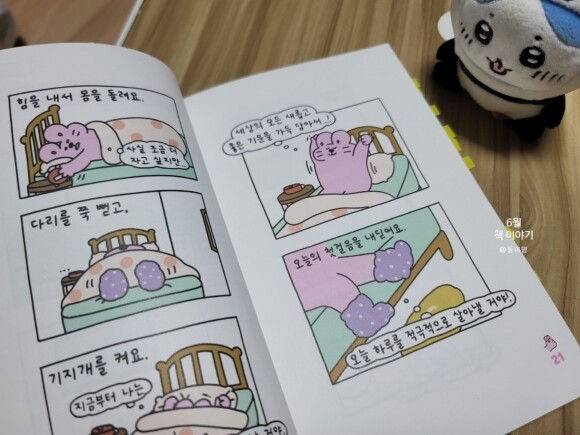 힘을 내서 몸을 돌려요.
사실 조금 더
자고 싶지만...
다리를 쭉 뻗고,
...
기지개를 켜요.
지금부터 나는
세상의 모든 새롭고
좋은 기운을 가득 담아서..!
오늘의 첫걸음을 내딛어요.
오늘 하루를 적극적으로 살아낼 거야!
21
6월
책 이야기